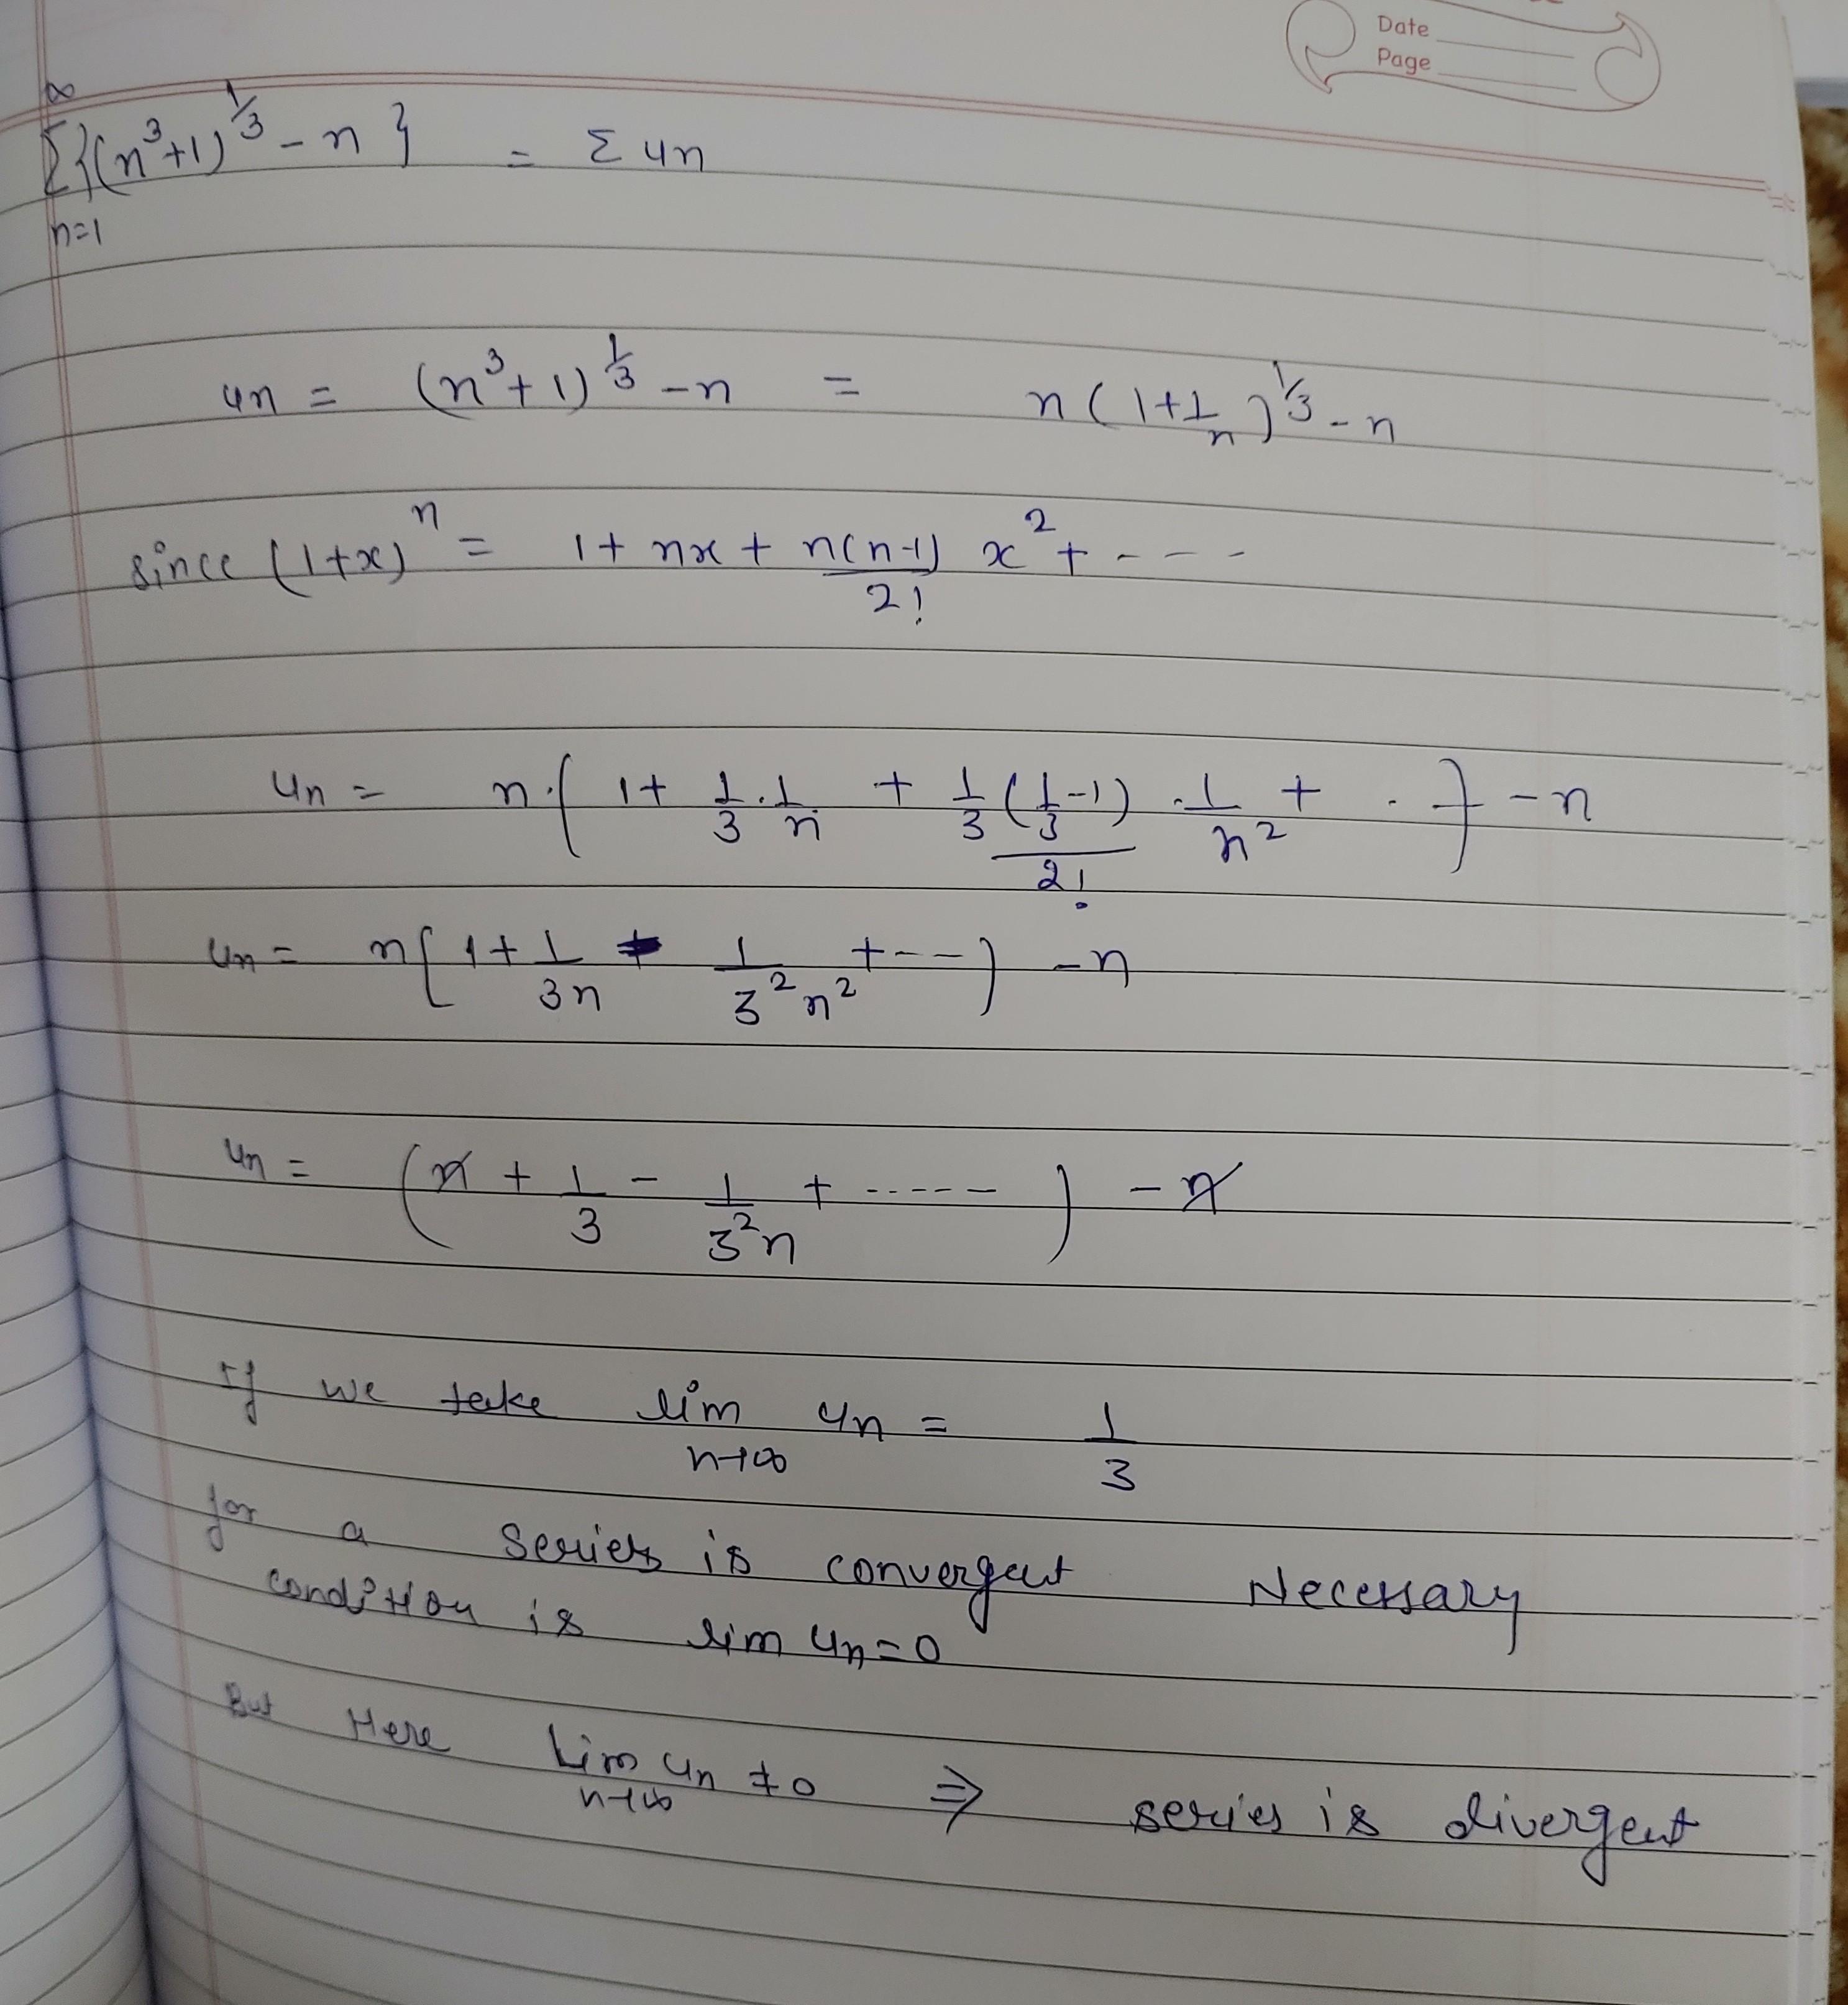 Date
Page
∞
Σ{(n³+1)^1/3 - n} = Σ un
n=1
un = (n³+1)^1/3 - n = n(1+1/n)^1/3 - n
since (1+x)^n = 1 + nx + n(n-1)/2! x² + - - -
un = n.{1 + 1/3 . 1/n + 1/3(1/3-1)/2! . 1/n² + . } - n
un = n[1 + 1/3n - 1/3²n² + - - ) - n
un = (n + 1/3 - 1/3²n + - - - - - ) - n
If we take lim n→∞ un = 1/3
for a series is convergent Necessary
condition is lim un = 0
But Here Lim n→∞ un ≠ 0 ⇒ series is divergent